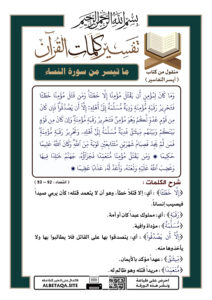 بسم الله الرحمن الرحيم
تفسير كلمات القرآن
منقول من كتاب
( أيسر التفاسير )
ما تيسر من سورة النساء
وَمَا كَانَ لِمُؤْمِنٍ أَن يَقْتُلَ مُؤْمِنًا إِلَّا خَطَئًا وَمَن قَتَلَ مُؤْمِنًا خَطَئًا
فَتَحْرِيرُ رَقَبَةٍ مُّؤْمِنَةٍ وَدِيَةٌ مُّسَلَّمَةٌ إِلَىٰ أَهْلِهِ إِلَّا أَن يَصَّدَّقُوا فَإِن كَانَ
مِن قَوْمٍ عَدُوٍّ لَّكُمْ وَهُوَ مُؤْمِنٌ فَتَحْرِيرُ رَقَبَةٍ مُّؤْمِنَةٍ وَإِن كَانَ مِن قَوْمٍ
بَيْنَكُمْ وَبَيْنَهُم مِّيثَاقٌ فَدِيَةٌ مُّسَلَّمَةٌ إِلَىٰ أَهْلِهِ وَتَحْرِيرُ رَقَبَةٍ مُّؤْمِنَةٍ
فَمَن لَّمْ يَجِدْ فَصِيَامُ شَهْرَيْنِ مُتَتَابِعَيْنِ تَوْبَةً مِّنَ اللَّهِ وَكَانَ اللَّهُ عَلِيمًا
حَكِيمًا وَمَن يَقْتُلْ مُؤْمِنًا مُّتَعَمِّدًا فَجَزَاؤُهُ جَهَنَّمُ خَالِدًا فِيهَا
وَغَضِبَ اللَّهُ عَلَيْهِ وَلَعَنَهُ وَأَعَدَّ لَهُ عَذَابًا عَظِيمًا
شرح الكلمات : ( النساء : 92 - 93 )
﴿إِلَّا خَطَئًا﴾ : أي: إلا قتلاً خطأ، وهو أن لا يتعمد قتله؛ كأن يرمي صيداً
فيصيب إنساناً.
﴿رَقَبَةٍ﴾ : أي: مملوك عبداً كان أو أمة.
﴿مُّسَلَّمَةٌ﴾ : مؤداة وافية.
﴿إِلَّا أَن يَصَّدَّقُوا﴾ : أي: يتصدقوا بها على القاتل فلا يطالبوا بها ولا
يأخذوها منه.
﴿مِّيثَاقٌ﴾ : عهد مؤكد بالأيمان.
﴿مُّتَعَمِّدًا﴾ : مريداً قتله وهو ظالم له.
ALBETAQA.SITE